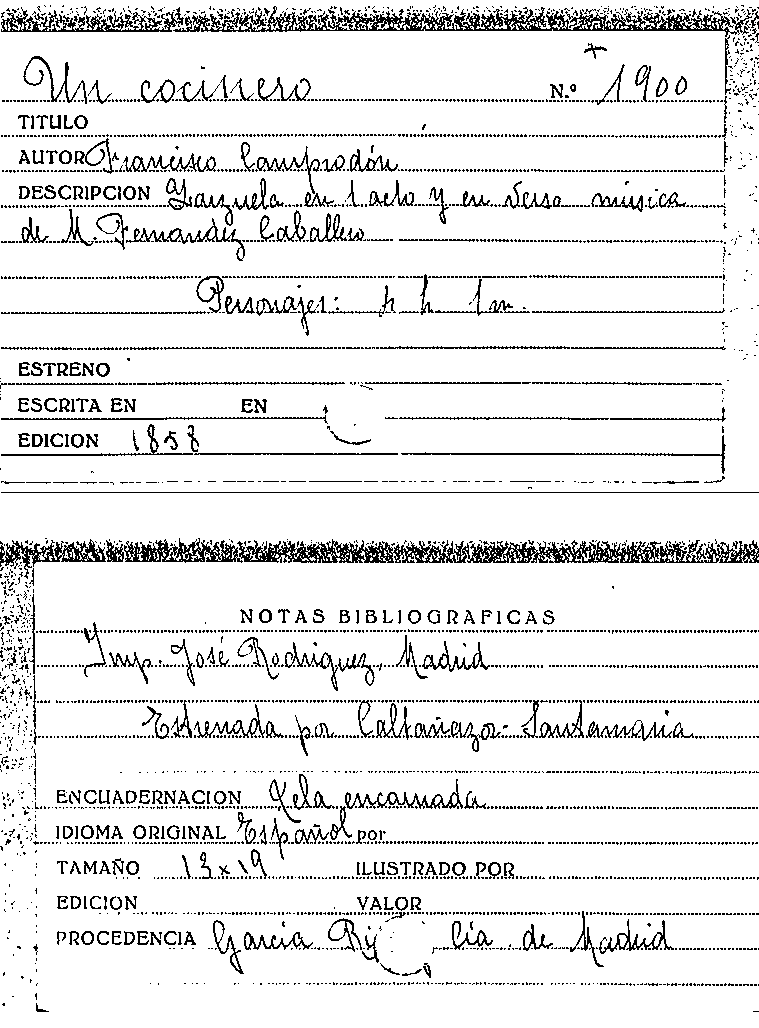 Un cocinero N.º 1900
TITULO
AUTOR Francisco Camprodón
DESCRIPCION Zarzuela en 1 acto y en verso música
de M. Fernandez Caballero
Personajes: h. 1 m.
ESTRENO
ESCRITA EN EN
EDICION 1858
NOTAS BIBLIOGRAFICAS
Imp. José Rodriguez, Madrid
Estrenada por Caltañazor-Santamaria
ENCUADERNACION Tela encarnada
IDIOMA ORIGINAL Español por
TAMAÑO 13 x 19 ILUSTRADO POR
EDICION VALOR
PROCEDENCIA Garcia Cía. de Madrid